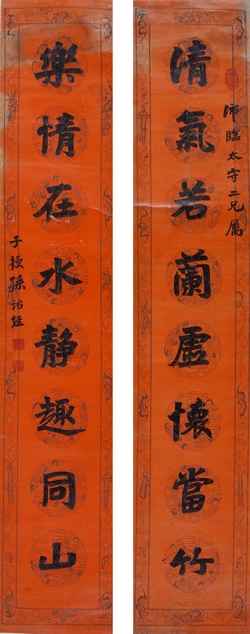 師臨太守二兄屬
清氣若蘭虛懷當竹
樂情在水靜趣同山
子授孫詒經